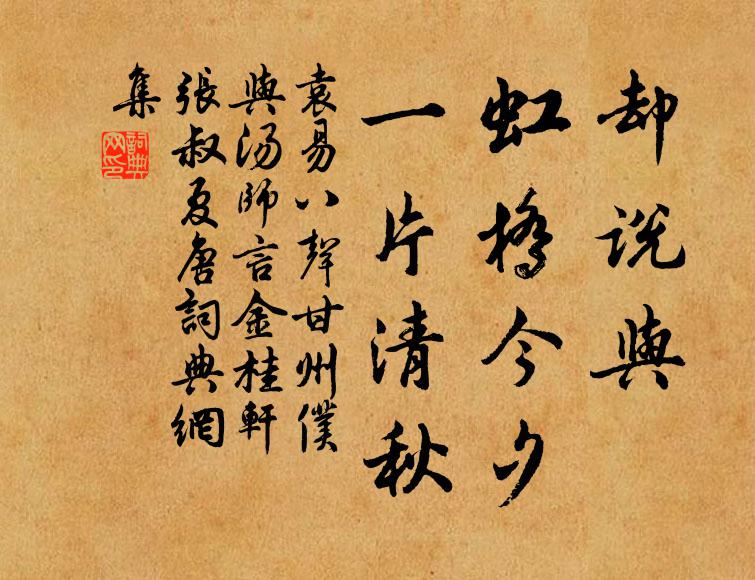 却说與
虹橋今夕
一片清秋
袁易八聲甘州僕
與湯師言金桂軒
張叔夏唐詞典網
集
詞典
网印